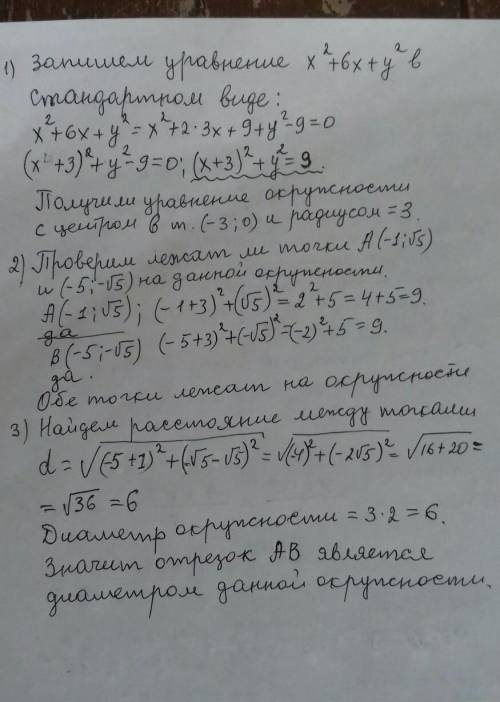 1) Запишем уравнение x²+6x+y² в
стандартном виде:
x²+6x+y²=x²+2·3x+9+y²-9=0
(x+3)²+y²-9=0; (x+3)²+y²=9.
Получили уравнение окружности
с центром в т. (-3;0) и радиусом =3.
2) Проверим лежат ли точки A(-1;√5)
и (-5;-√5) на данной окружности.
A(-1;√5); (-1+3)²+(√5)²=2²+5=4+5=9.
да
B(-5;-√5) (-5+3)²+(-√5)²=(-2)²+5=9.
да.
Обе точки лежат на окружности
3) Найдем расстояние между точками
d=√(-5+1)²+(-√5-√5)²=√(4)²+(-2√5)²=√16+20=
=√36=6
Диаметр окружности =3·2=6.
Значит отрезок AB является
диаметром данной окружности.